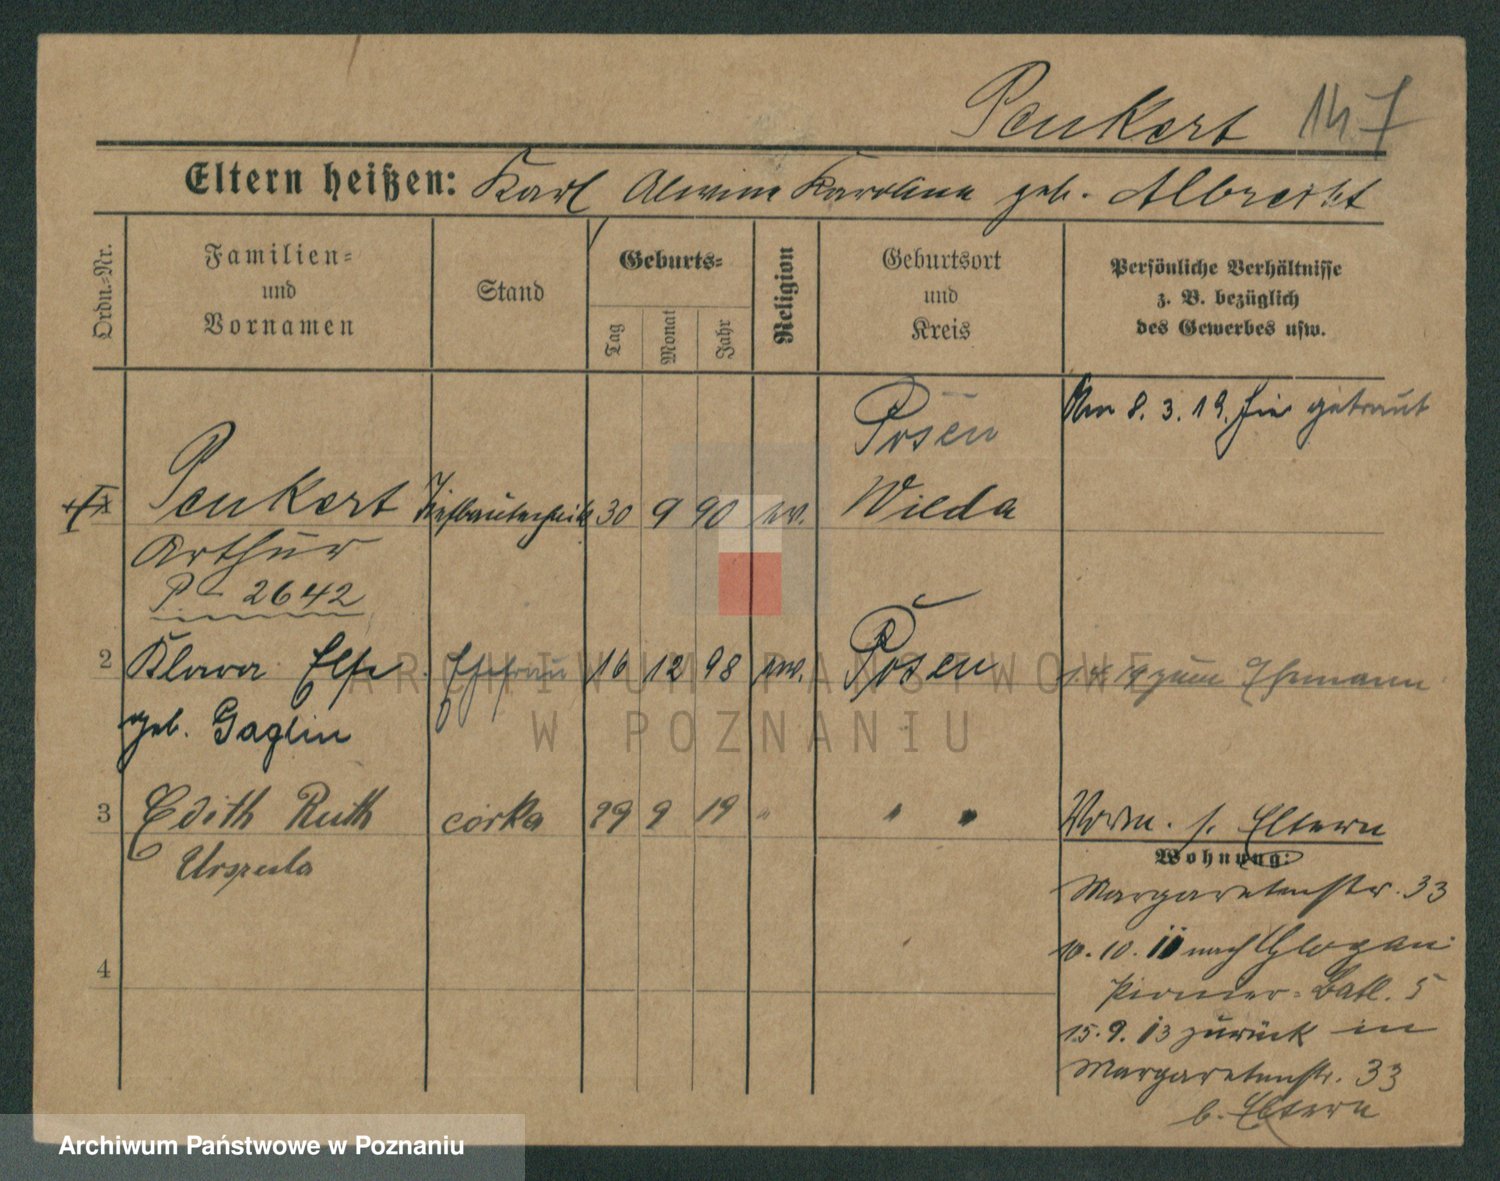 Peukert 147
Eltern heißen: Karl Alwine Karoline geb. Albrecht
Ordn.-Nr.
Familien-
und
Vornamen
Stand
Geburts-
Tag
Monat
Jahr
Religion
Geburtsort
und
Kreis
Persönliche Verhältnisse
z. B. bezüglich
des Gewerbes usw.
Am 8. 3. 19. hier getraut
Posen
Peukert Tiefbautechnik 30 9 90 ev. Wilda
Arthur
P - 2642
2 Klara Else Ehefrau 16 12 98 ev. Posen zum Ehemann
geb. Gaglin
3 Edith Ruth córka 29 9 19 " " " Worm. s. Eltern
Urszula
Wohnung:
Margaretenstr. 33
4
10. 10. 11 nach Glogau
Pionier-Batl. 5
15. 9. 13 zurück in
Margaretenstr. 33
b. Eltern
ARCHIWUM PAŃSTWOWE
W POZNANIU
Archiwum Państwowe w Poznaniu